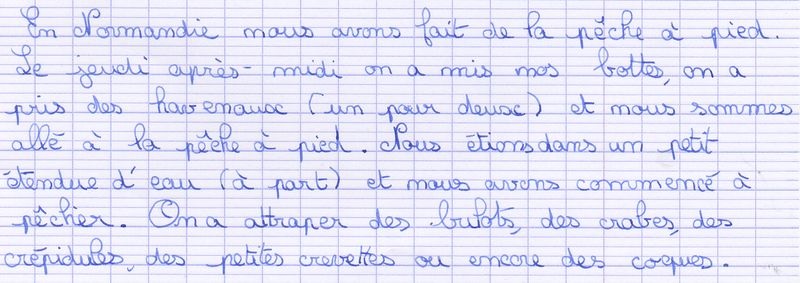 En Normandie nous avons fait de la pêche à pied.
Le jeudi après-midi on a mis nos bottes, on a
pris des havenaux (un pour deux) et nous sommes
allé à la pêche à pied. Nous étions dans un petit
étendue d'eau (à part) et nous avons commencé à
pêcher. On a attraper des bulots, des crabes, des
crépidules, des petites crevettes ou encore des coques.